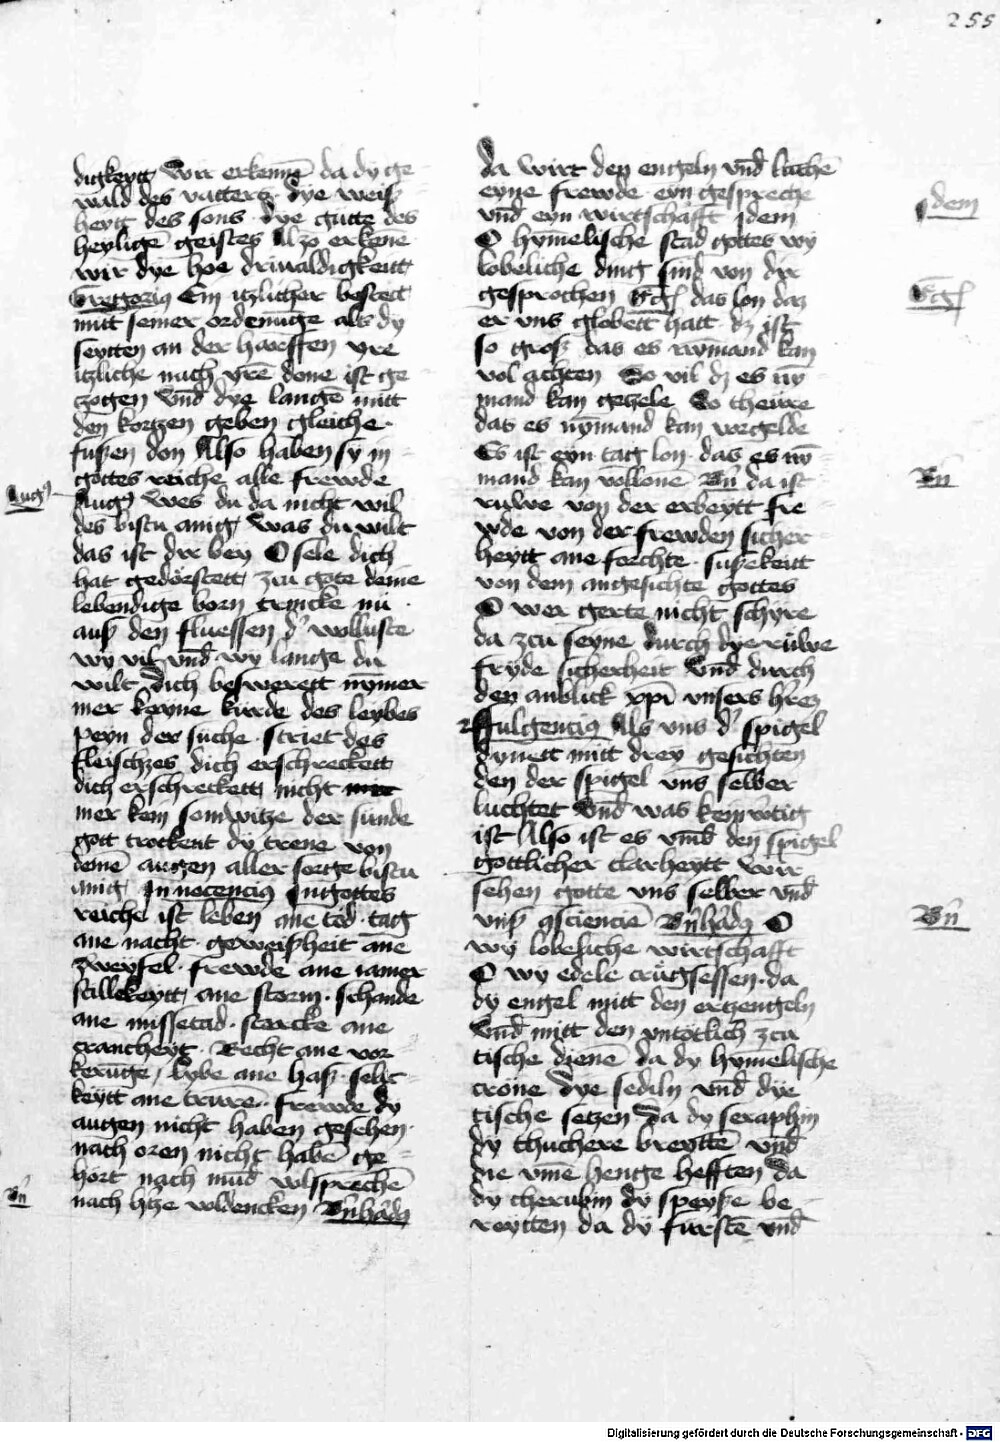 255
digkeytt Wir erkennē da dy ge
wald des vatters · dye weiß
heytt des sons · dye gutte des
heyligē geistes Alzo erkēne
wir dye hoe driualdigkeitt
Gregoriꝰ Ein itzlicher bestett
mitt seiner ordenūge als dy
seytten an der harffen yre
itzliche nach yrē done ist ge
zogen Vnd dye langē mitt
den kortzen geben gleiche
fußen don Also haben sy in
gottes reiche alle frewde
Augꝰ
Augꝰ wes du da nicht wil
des bistu anig Was du wilt
das ist dir bey O sele dich
hat gedörstett zcu gote deinē
lebendige born trincke nū
auß den fluessen dˀ wolluste
wy vil vnd wy lange du
wilt Dich beswerett nymer
mer keyne burde des leybes
peyn der suche · striet des
fleischzes dich erschreckett
dich erschreckett nicht
mer kein sonwitze der sunde
gott trockent dy trene von
deinē augen aller sorge bistu
anig Innocenciꝰ In gottes
reiche ist leben ane tod · tag
ane nacht · geweisheit ane
zweyfel · frewde ane iamer
stillekeytt ane storm · schande
ane missetad · starcke ane
cranckeyt · Recht ane vor
kerūge / lybe ane haß · selic
keytt ane trure · frewde dy
augen nicht haben gesehen ·
nach oren nicht habē ge
hort nach mūd volsprechē
nach htze voldencken Bˀnhˀdꝰ
Bˀn
da wirt den engeln vnd
eyne frewde · eyn gespreche
vnd eyn wirtschafft jdem
jdem
O hymelische stad gottes wy
lobeliche ding sind von dir
gesprochen das lon daz
er vns globett hatt · dz ist
so groß das es nymand kan
vol achten So vil dz es ny
mand kan gezele So theure
das es nymand kan vorgelde
Es ist eyn tag lon · das es ny
mand kan vollonē Bˀn da ist
Bˀn
ruwe von der erbeytt fre
wde von der frewden sicher
heytt ane forchte · sußekeitt
von dem angesichte gottes
O wer gerte nicht schyre
da zcu seyne durch dye rulve
fryde sicherheit Vnd durch
den anblick xpi vnsers hˀrez
Fulgenciꝰ Als vns dˀ spigel
dynett mitt drey gesichten
den der spigel vns selber
luchtet Vnd was keinwtig
ist Also ist es vmb den spigel
gottlicher clarheytt Wir
sehen gotte vns selber vnd
vnß Bˀnhˀdꝰ O
Bˀn
wy lobeliche wirtschafft
O wy edele trugsessen · da
dy engel mitt den ertzengeln
Vnd mitt den vntotlich zcu
tische dienē da dy hymelische
crone dye sediln vnd dye
tische setzen Da dy seraphin
dy thuchere breyttē vnd
die vme henge hefften da
dy cherubin dy speyße be
reytten da dy furstē vnd
Digitalisierung gefördert durch die Deutsche Forschungsgemeinschaft - DFG